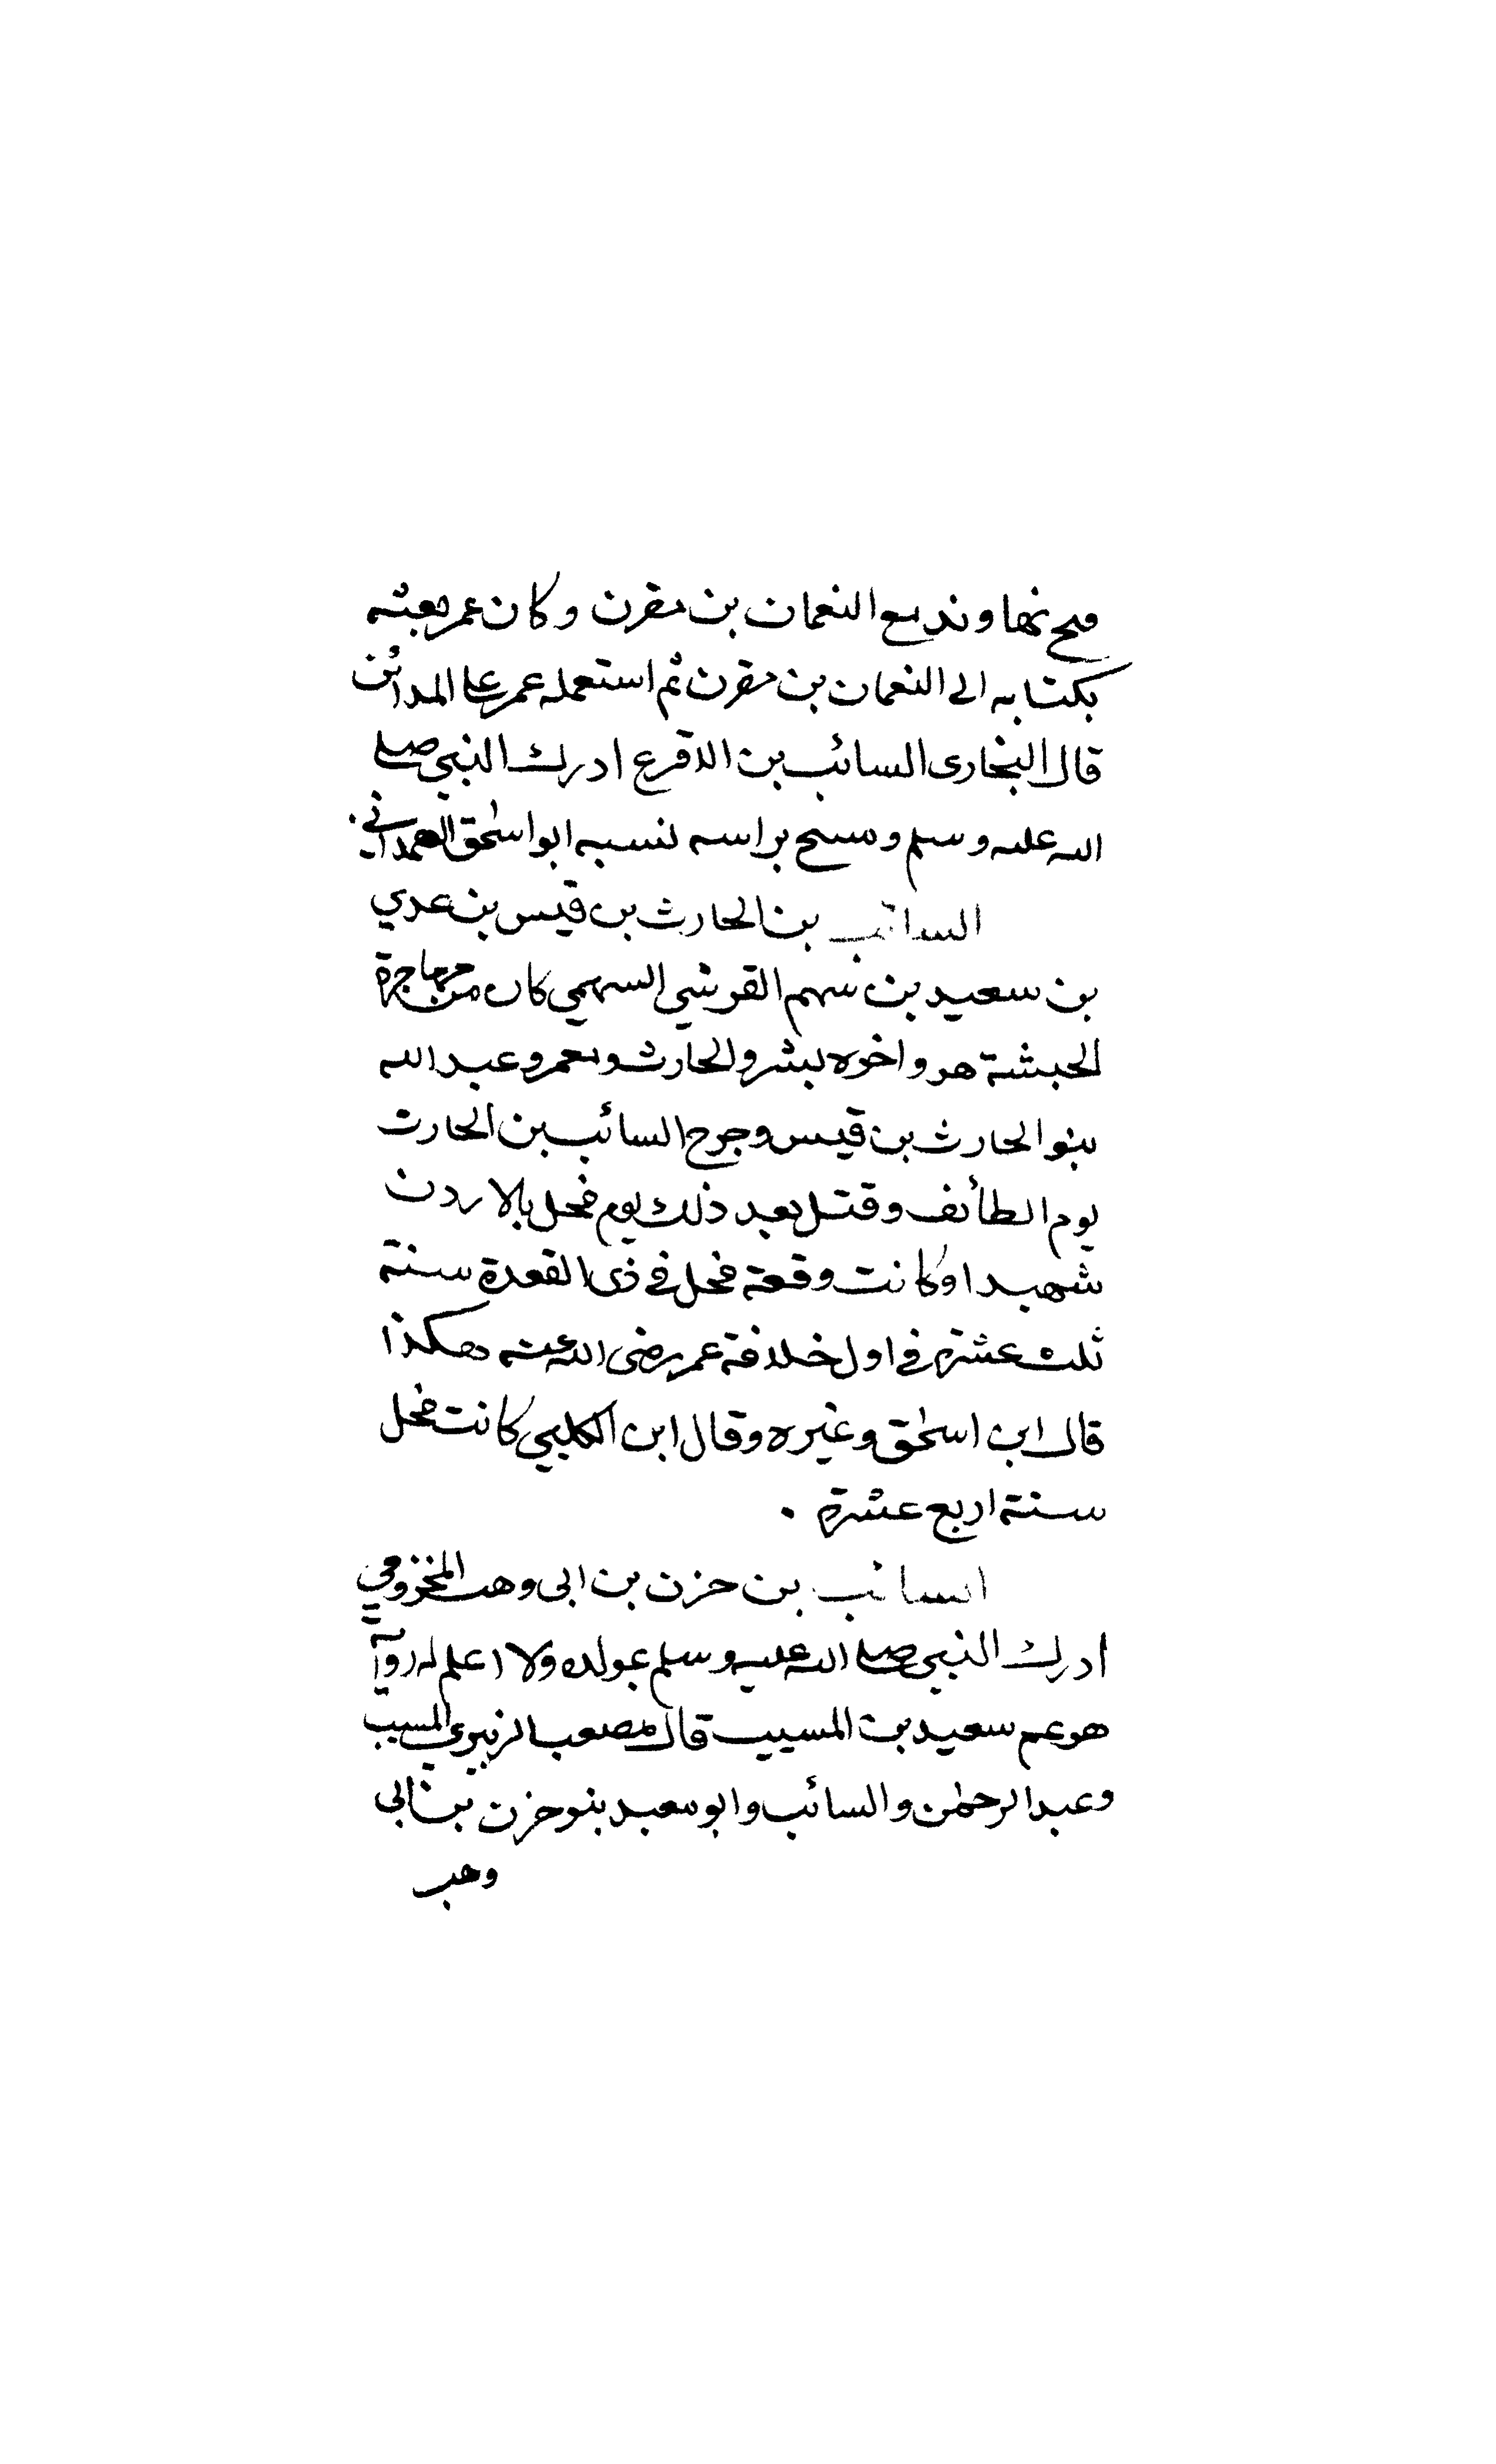 فتح نهاوند مع النعمان بن مقرن وكان عمر بعثه
بكتابه الى النعمان بن مقرن ثم استعمله عمر على المدائن
قال البخارى السائب بن الاقرع ادرك النبي صلى
الله عليه وسلم ومسح براسه نسبه ابو اسحق الهمداني.
السائب بن الحارث بن قيس بن عدي
بن سعيد بن سهم القرشي السهمي كان من مهاجرة
الحبشة هو واخوه بشر والحارث ومعمر وعبد الله
بنو الحارث بن قيس وجرح السائب بن الحارث
يوم الطائف وقتل بعد ذلك يوم فحل بالاردن
شهيدا وكانت وقعة فحل في ذى القعدة سنة
ثلث عشرة في اول خلافة عمر رضى الله عنه هكذا
قال ابن اسحق وغيره وقال ابن الكلبي كانت فحل
سنة اربع عشرة .
السائب بن حزن بن ابى وهب المخزومي
ادرك النبي صلى الله عليه وسلم بمولده ولا اعلم له رواية
هو عم سعيد بن المسيب قال مصعب الزبيري المسيب
وعبد الرحمن والسائب وابو سعيد بنو حزن بن ابي
وهب